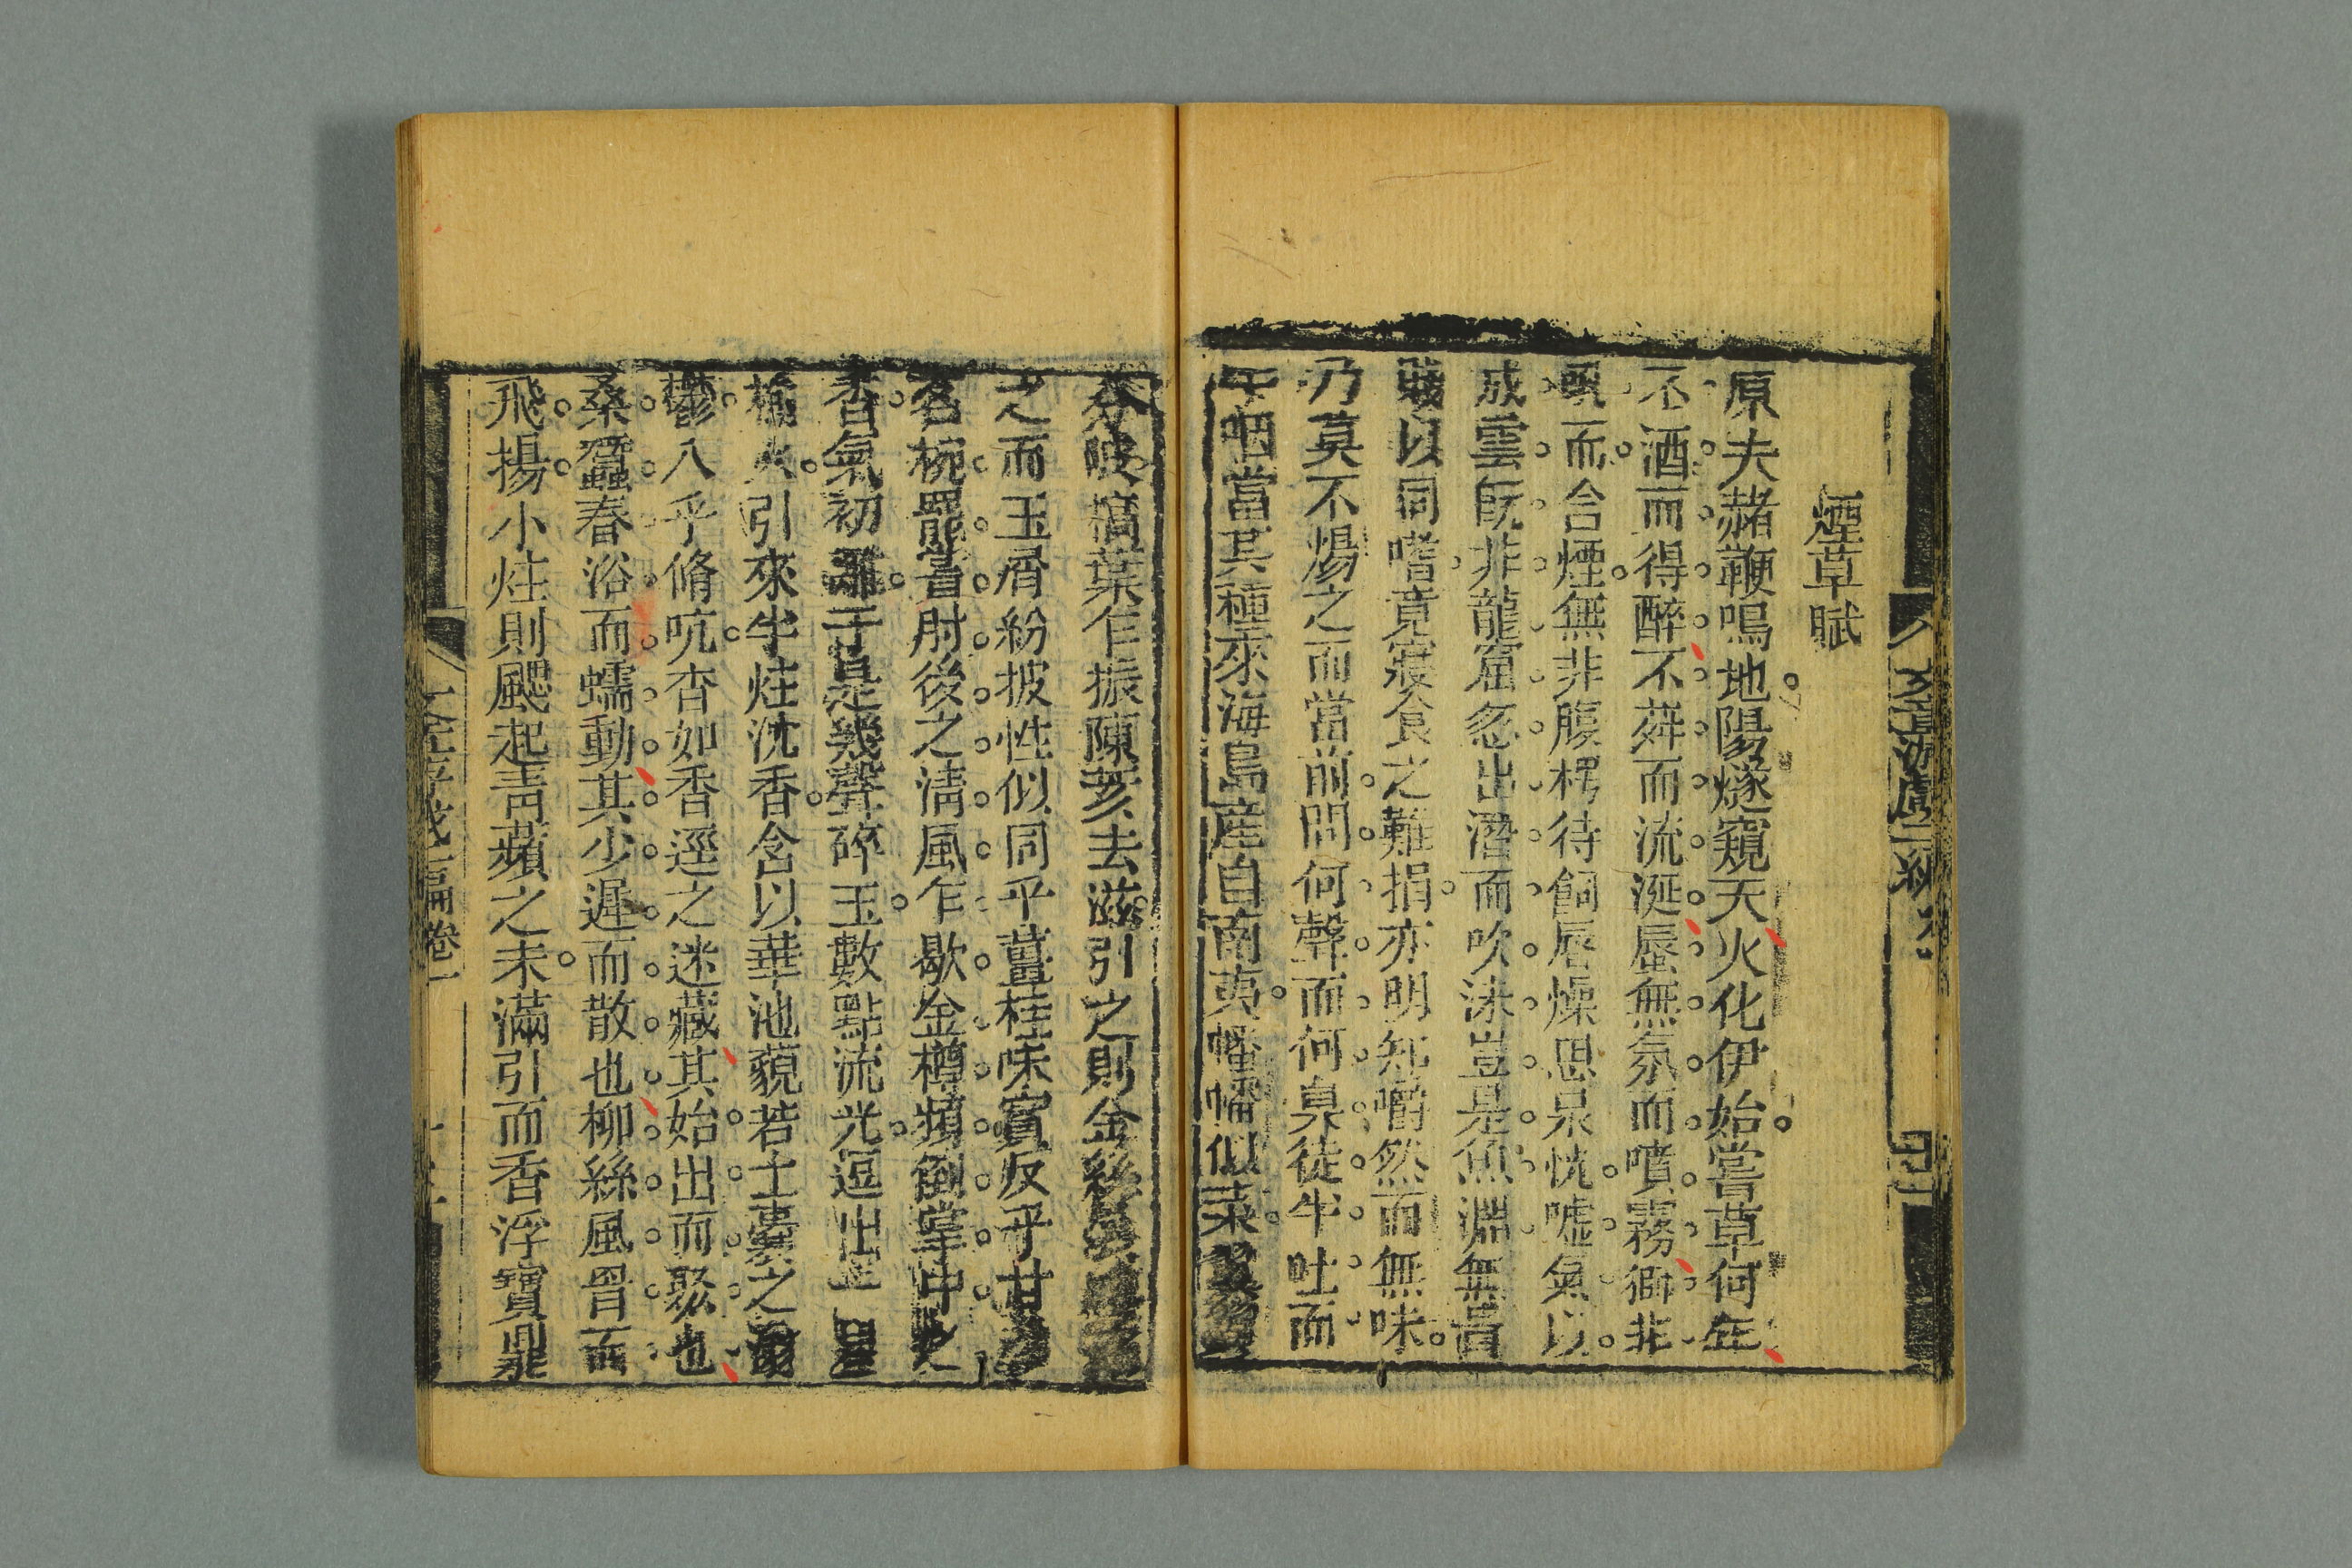 煙草賦
原夫赭鞭鳴地陽燧窺天火化伊始嘗草何年
不酒而得醉不蕣而流涎蜃無氛而噴霧獅非
風而含煙無非腹枵待飼唇燥思呆恍噓氣以
成雲旣非龍窟忽出潛而吹沫豈是魚淵無昌
歜以同嗜竟寢食之難捐亦明知嚼然而無味
乃莫不煬之而當前問何聲而何臭徒半吐而
半咽當其種來海島產自南夷幡幡似菜
陂摘葉乍振陳荄去滋引之則金絲
之而玉屑紛披性似同乎薑桂味實反乎甘
茗椀罷嘗肘後之淸風乍歇金樽頻倒掌中之
香氣初于是幾聲碎玉數點流光逗出
榆火引來半炷沈香含以華池藐若土囊之
鬱入乎脩吭杳如香逕之迷藏其始出而聚也
桑蠶春浴而蠕動其少遲而散也柳絲風罥而
飛揚小炷則颸起青蘋之末滿引而香浮寶鼎